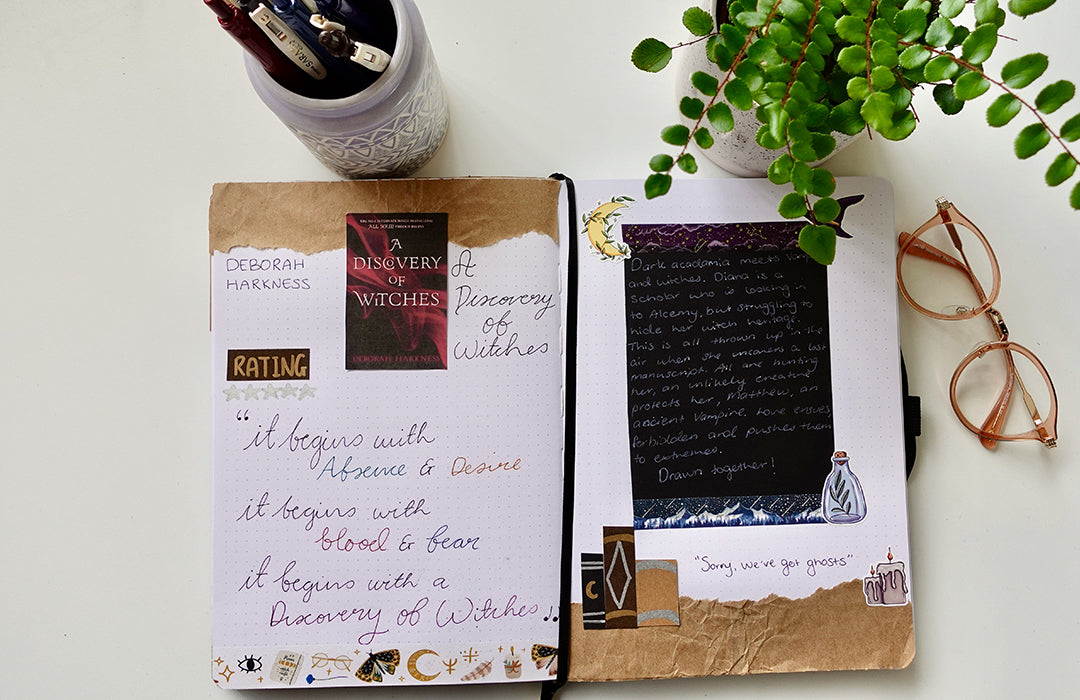 SARA
DEBORAH
HARKNESS
ALL SOULS
A
DISCOVERY
OF
WITCHES
DEBORAH HARKNESS
A
Discovery
of
Witches
RATING
“it begins with
Absence & Desire
it begins with
blood & fear
it begins with a
Discovery of Witches.”
Dark acadamia meets Vam
and witches. Diana is a
scholar who is looking in
to Alcemy, but struggling to
hide her witch heritage.
This is all thrown up in the
air when she uncovers a lost
manuscript. All are hunting
her, an unlikely creature
protects her, Matthew, an
ancient Vampire, Love ensues,
forbidden and pushes them
to extremes.
Drawn together!
"Sorry, we've got ghosts"